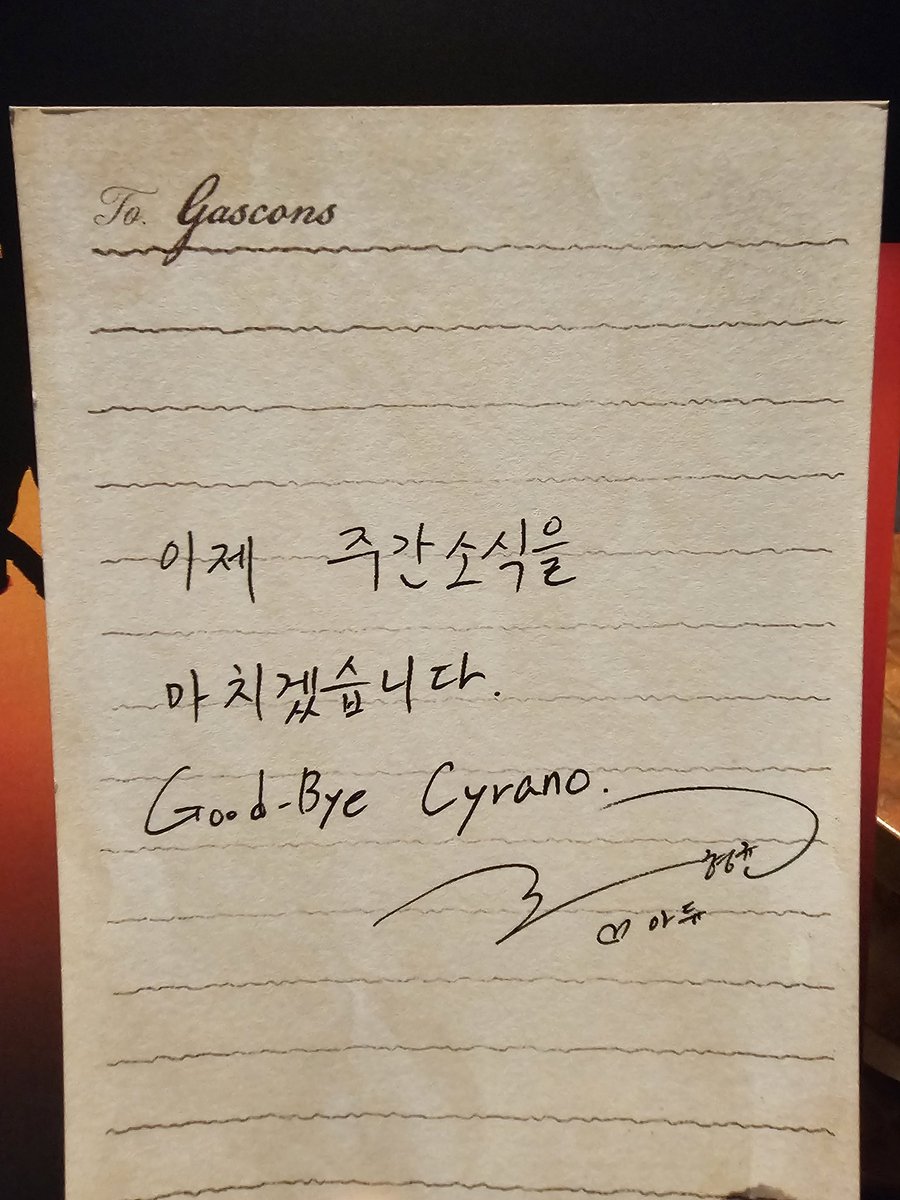 To. Gascons
이제 주간소식을
마치겠습니다.
Good-Bye Cyrano.
형균
♡ 아듀